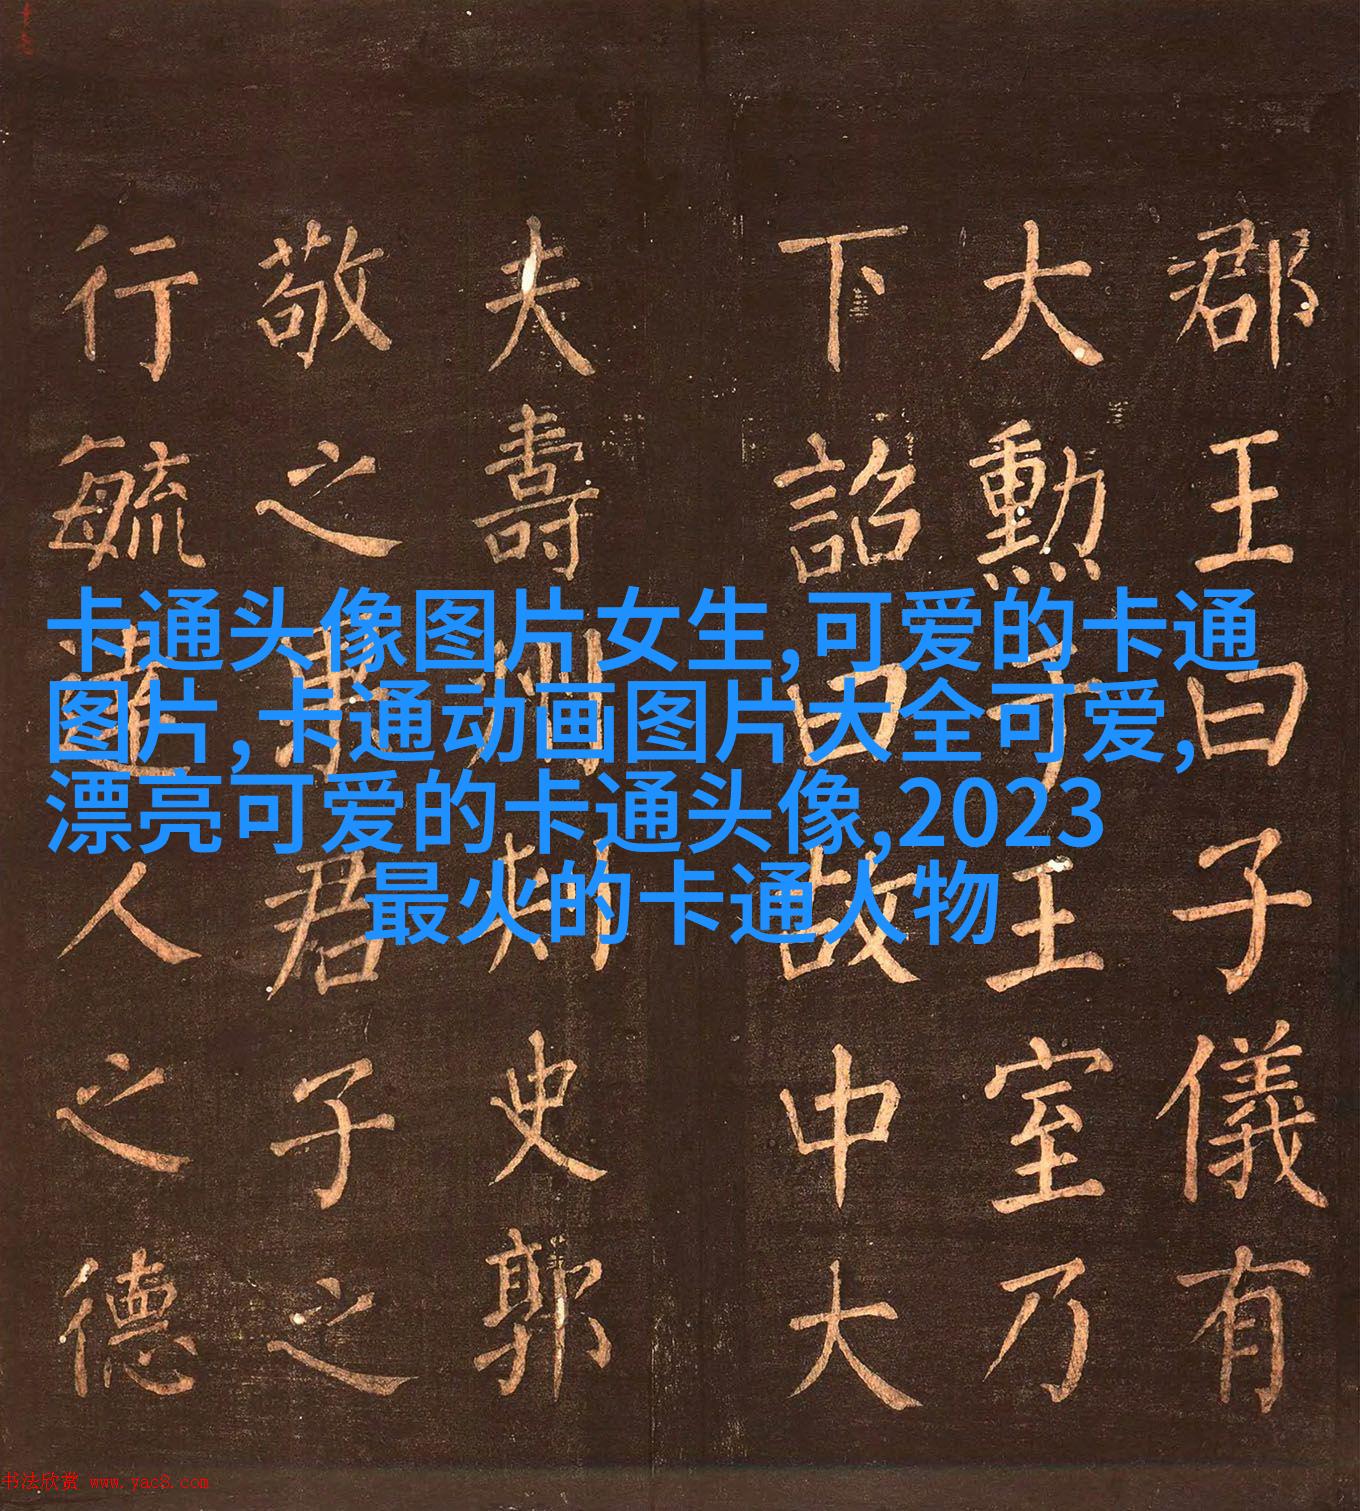 卡通头像图片女生,可爱的卡通
图片,卡通动画图片大全可爱,
漂亮可爱的卡通头像,2023
最火的卡通人物
郡王曰子儀有
大勳于王室乃
下詔曰故中大
夫壽州刺史郭
敬之君子之
行毓人之德
书法欣赏 www.yac8.com